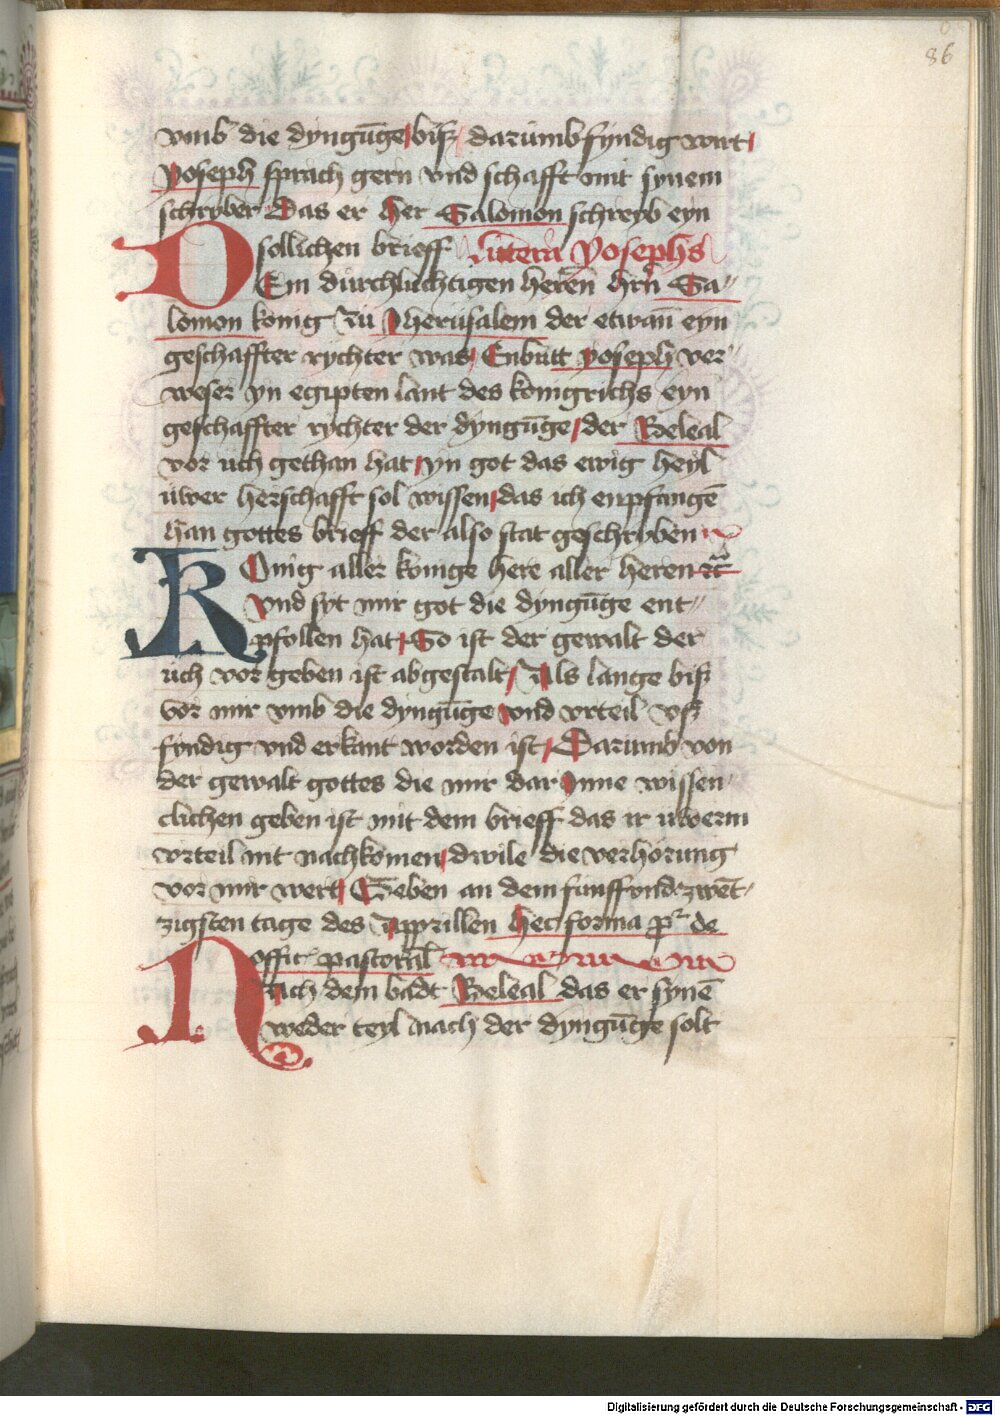 86
vmb die dyngūge biß darumb fyndig wirt
Yoseph sprach gern vnd schafft mit synem
schryber Das er her Salomon schreyb eyn
sollichen brieff Littera Yosephs
DEm durchluchtigen herren hrn̄ Sa-
lomon konig zu Jherusalem der etwan̄ eyn
geschaffter rychter was Enbutt yoseph ver-
weser yn egipten lant des konigrichs eyn
geschaffter rychter der dyngūge der Beleal
vor uch gethan hat yn got das ewig heyl
uwer herschafft sol wissen das ich enpfangē
han gottes brieff der also stat geschryben
KOnig aller konige here aller heren
vnd syt mir got die dyngūge ent-
pfollen hat So ist der gewalt der
uch vor geben ist abgestalt Als lange biß
vor mir vmb die dyngūge vnd vrteil vß
fyndig vnd erkant worden ist Darumb von
der gewalt gottes die mir dar Jnne wissen-
clichen geben ist mit dem brieff das ir uwerm
vrteil nit nachkomen dwile die verhorung
vor mir wert Geben an dem funff vnd zwēt-
zigsten tage des Apprillen hec forma p͛ de
offic pastoral
NAch dem badt Beleal das er synē
weder teyl nach der dyngūge solt
Digitalisierung gefördert durch die Deutsche Forschungsgemeinschaft - DFG